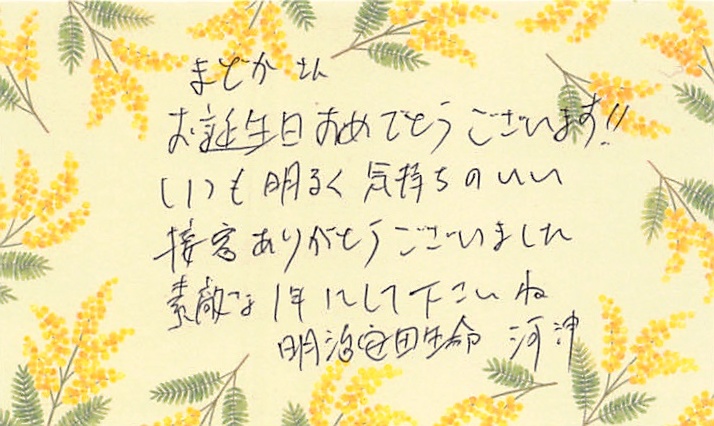 まどかさん
お誕生日おめでとうございます!!
いつも明るく気持ちのいい
接客ありがとうございました
素敵な1年にして下さいね
明治安田生命 河沖